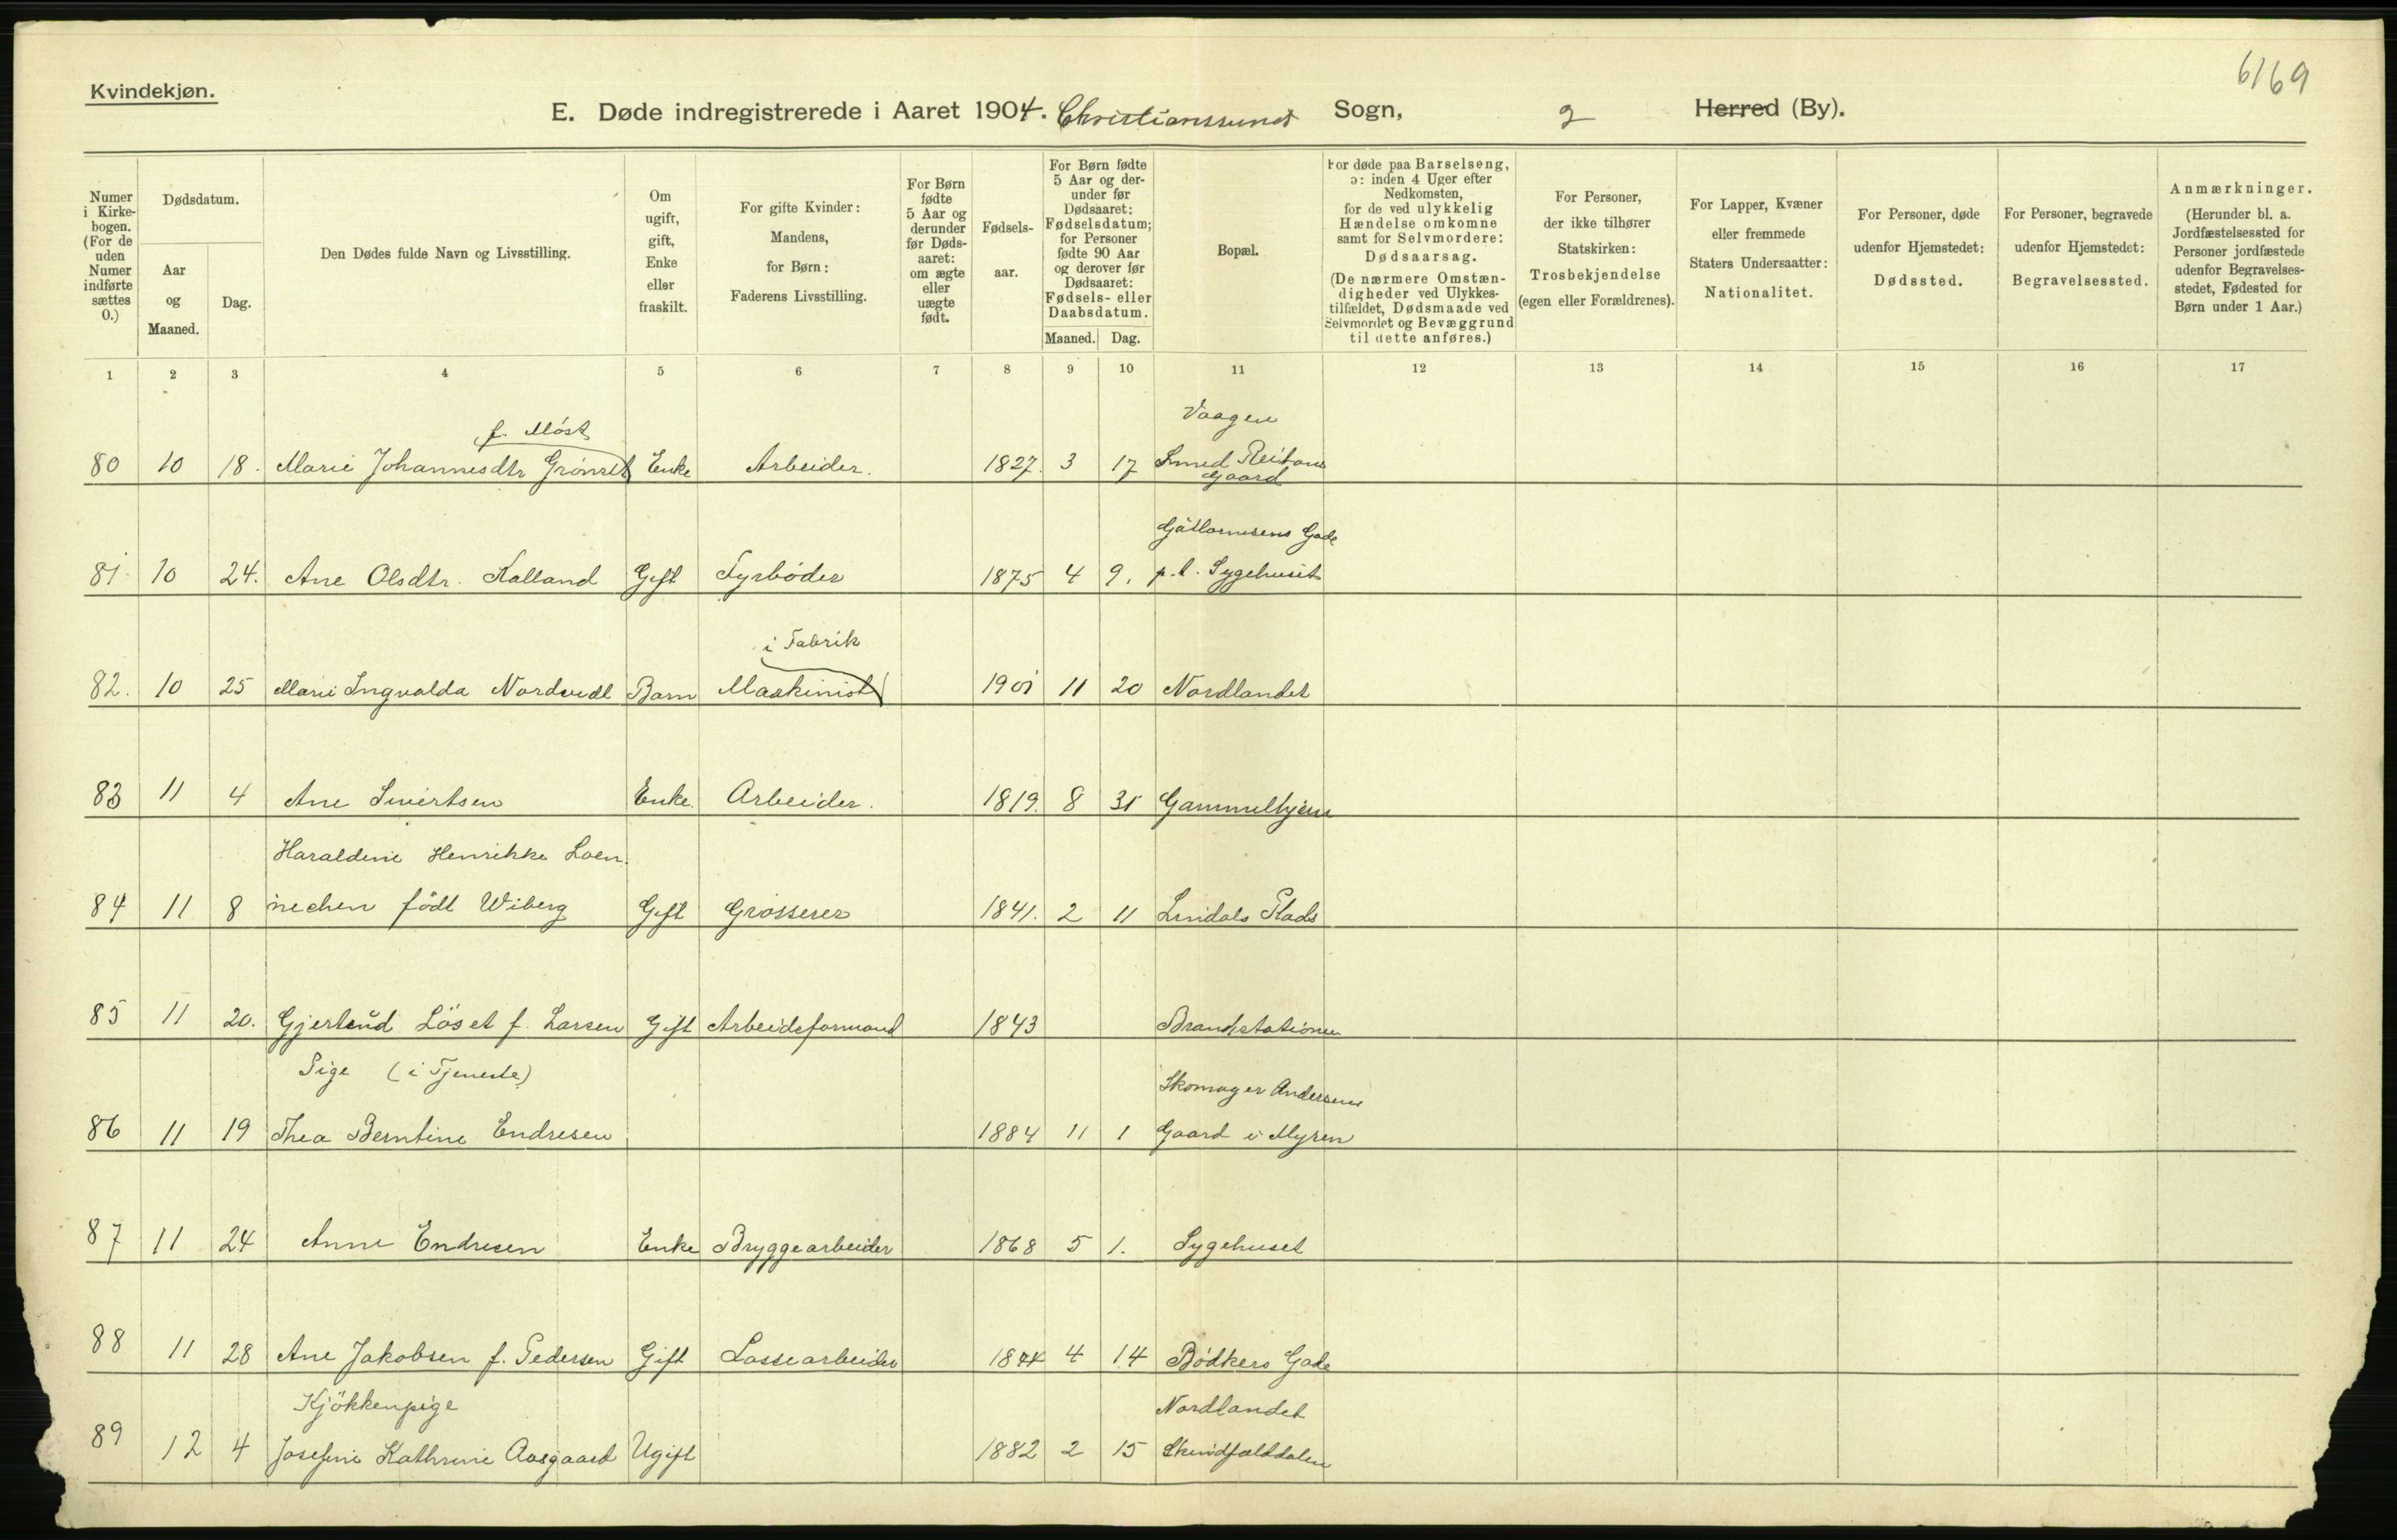 6169
Kvindekjøn.
E. Døde indregistrerede i Aaret 1904. Christianssund Sogn, 2 Herred (By).
Numer i Kirkebogen. (For de uden Numer indførte sættes 0.)
Dødsdatum.
Aar og Maaned.
Dag.
Den Dødes fulde Navn og Livsstilling.
Om ugift, gift, Enke eller fraskilt.
For gifte Kvinder: Mandens, for Børn: Faderens Livsstilling.
For Børn fødte 5 Aar og derunder før Dødsaaret: om ægte eller uægte født.
Fødselsaar.
For Børn fødte 5 Aar og derunder før Dødsaaret: Fødselsdatum; for Personer fødte 90 Aar og derover før Dødsaaret: Fødsels- eller Daabsdatum.
Maaned. Dag.
Bopæl.
For døde paa Barselseng, ɔ: inden 4 Uger efter Nedkomsten, for de ved ulykkelig Hændelse omkomne samt for Selvmordere: Dødsaarsag. (De nærmere Omstændigheder ved Ulykkestilfældet, Dødsmaade ved Selvmordet og Bevæggrund til dette anføres.)
For Personer, der ikke tilhører Statskirken: Trosbekjendelse (egen eller Forældrenes).
For Lapper, Kvæner eller fremmede Staters Undersaatter: Nationalitet.
For Personer, døde udenfor Hjemstedet: Dødssted.
For Personer, begravede udenfor Hjemstedet: Begravelsessted.
Anmærkninger. (Herunder bl. a. Jordfæstelsessted for Personer jordfæstede udenfor Begravelsesstedet, Fødested for Børn under 1 Aar.)
1 2 3 4 5 6 7 8 9 10 11 12 13 14 15 16 17
f. Möst Vaagen
80 10 18. Marie Johannesdtr Grönset Enke Arbeider. 1827. 3 17 Smed Reitans
Gaard
Gade
81 10 24. Ane Olsdtr. Kalland Gift Fyrböder 1875 4 9. p.t. Sygehuset
i Fabrik
82. 10 25 Marie Ingvalda Nordvedt Barn Maskinist 1901 11 20 Nordlandet
83 11 4 Ane Sivertsen Enke. Arbeider. 1819. 8 31
Haraldine Henrikke Loen
84 11 8 nechen födt Wiberg Gift Grosserer 1841. 2 11 Lindals Plads
85 11 20. Gjertrud Löset f. Larsen Gift Arbeidsformand 1843 Brandstationen
Pige (i Tjeneste) Skomager Andersens
86 11 19 Thea Berntine Endresen 1884 11 1 Gaard i Myren
87 11 24 Anne Endresen Enke Bryggearbeider 1868 5 1. Sygehuset
88 11 28 Ane Jakobsen f. Pedersen Gift Lossearbeider 4 14 Bödkers Gade
Kjökkenpige Nordlandet
89 12 4 Josefine Kathrine Aasgaard Ugift 1882 2 15 Skindfælddalen